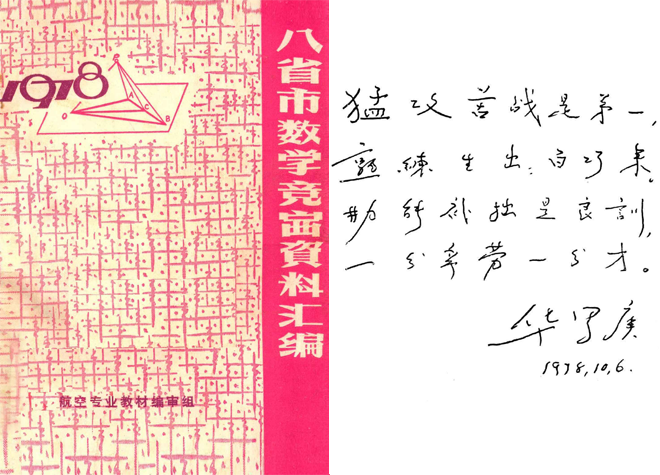 1978
八省市数学竞宙資料汇编
航空专业教材编审组
猛攻苦战是第一,
熟練生出百巧来。
勤能补拙是良訓,
一分辛劳一分才。
华罗庚
1978,10,6.